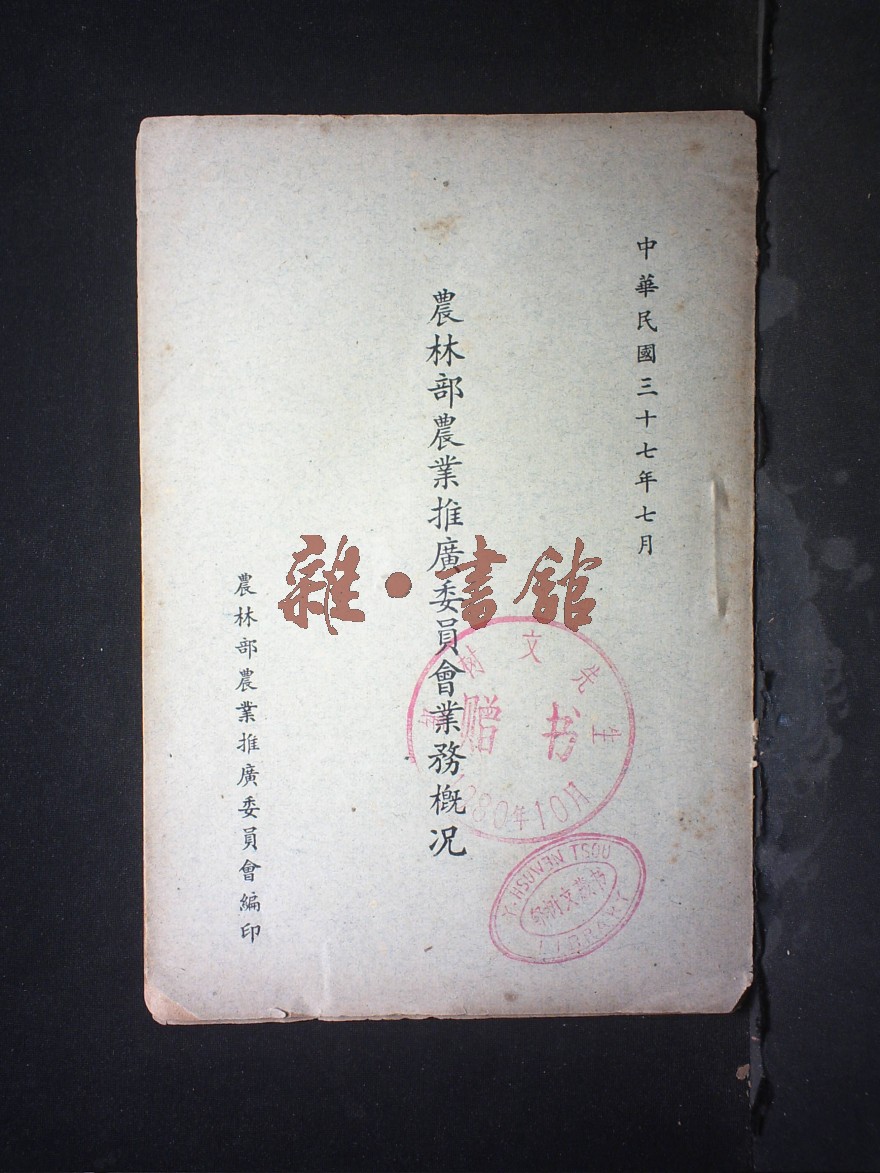 中華民國三十七年七月
農林部農業推廣委員會業務概況
農林部農業推廣委員會編印
雜·書館
树文先生
赠书
1980年10月
Y. HSUWEN TSOU
LIBRARY